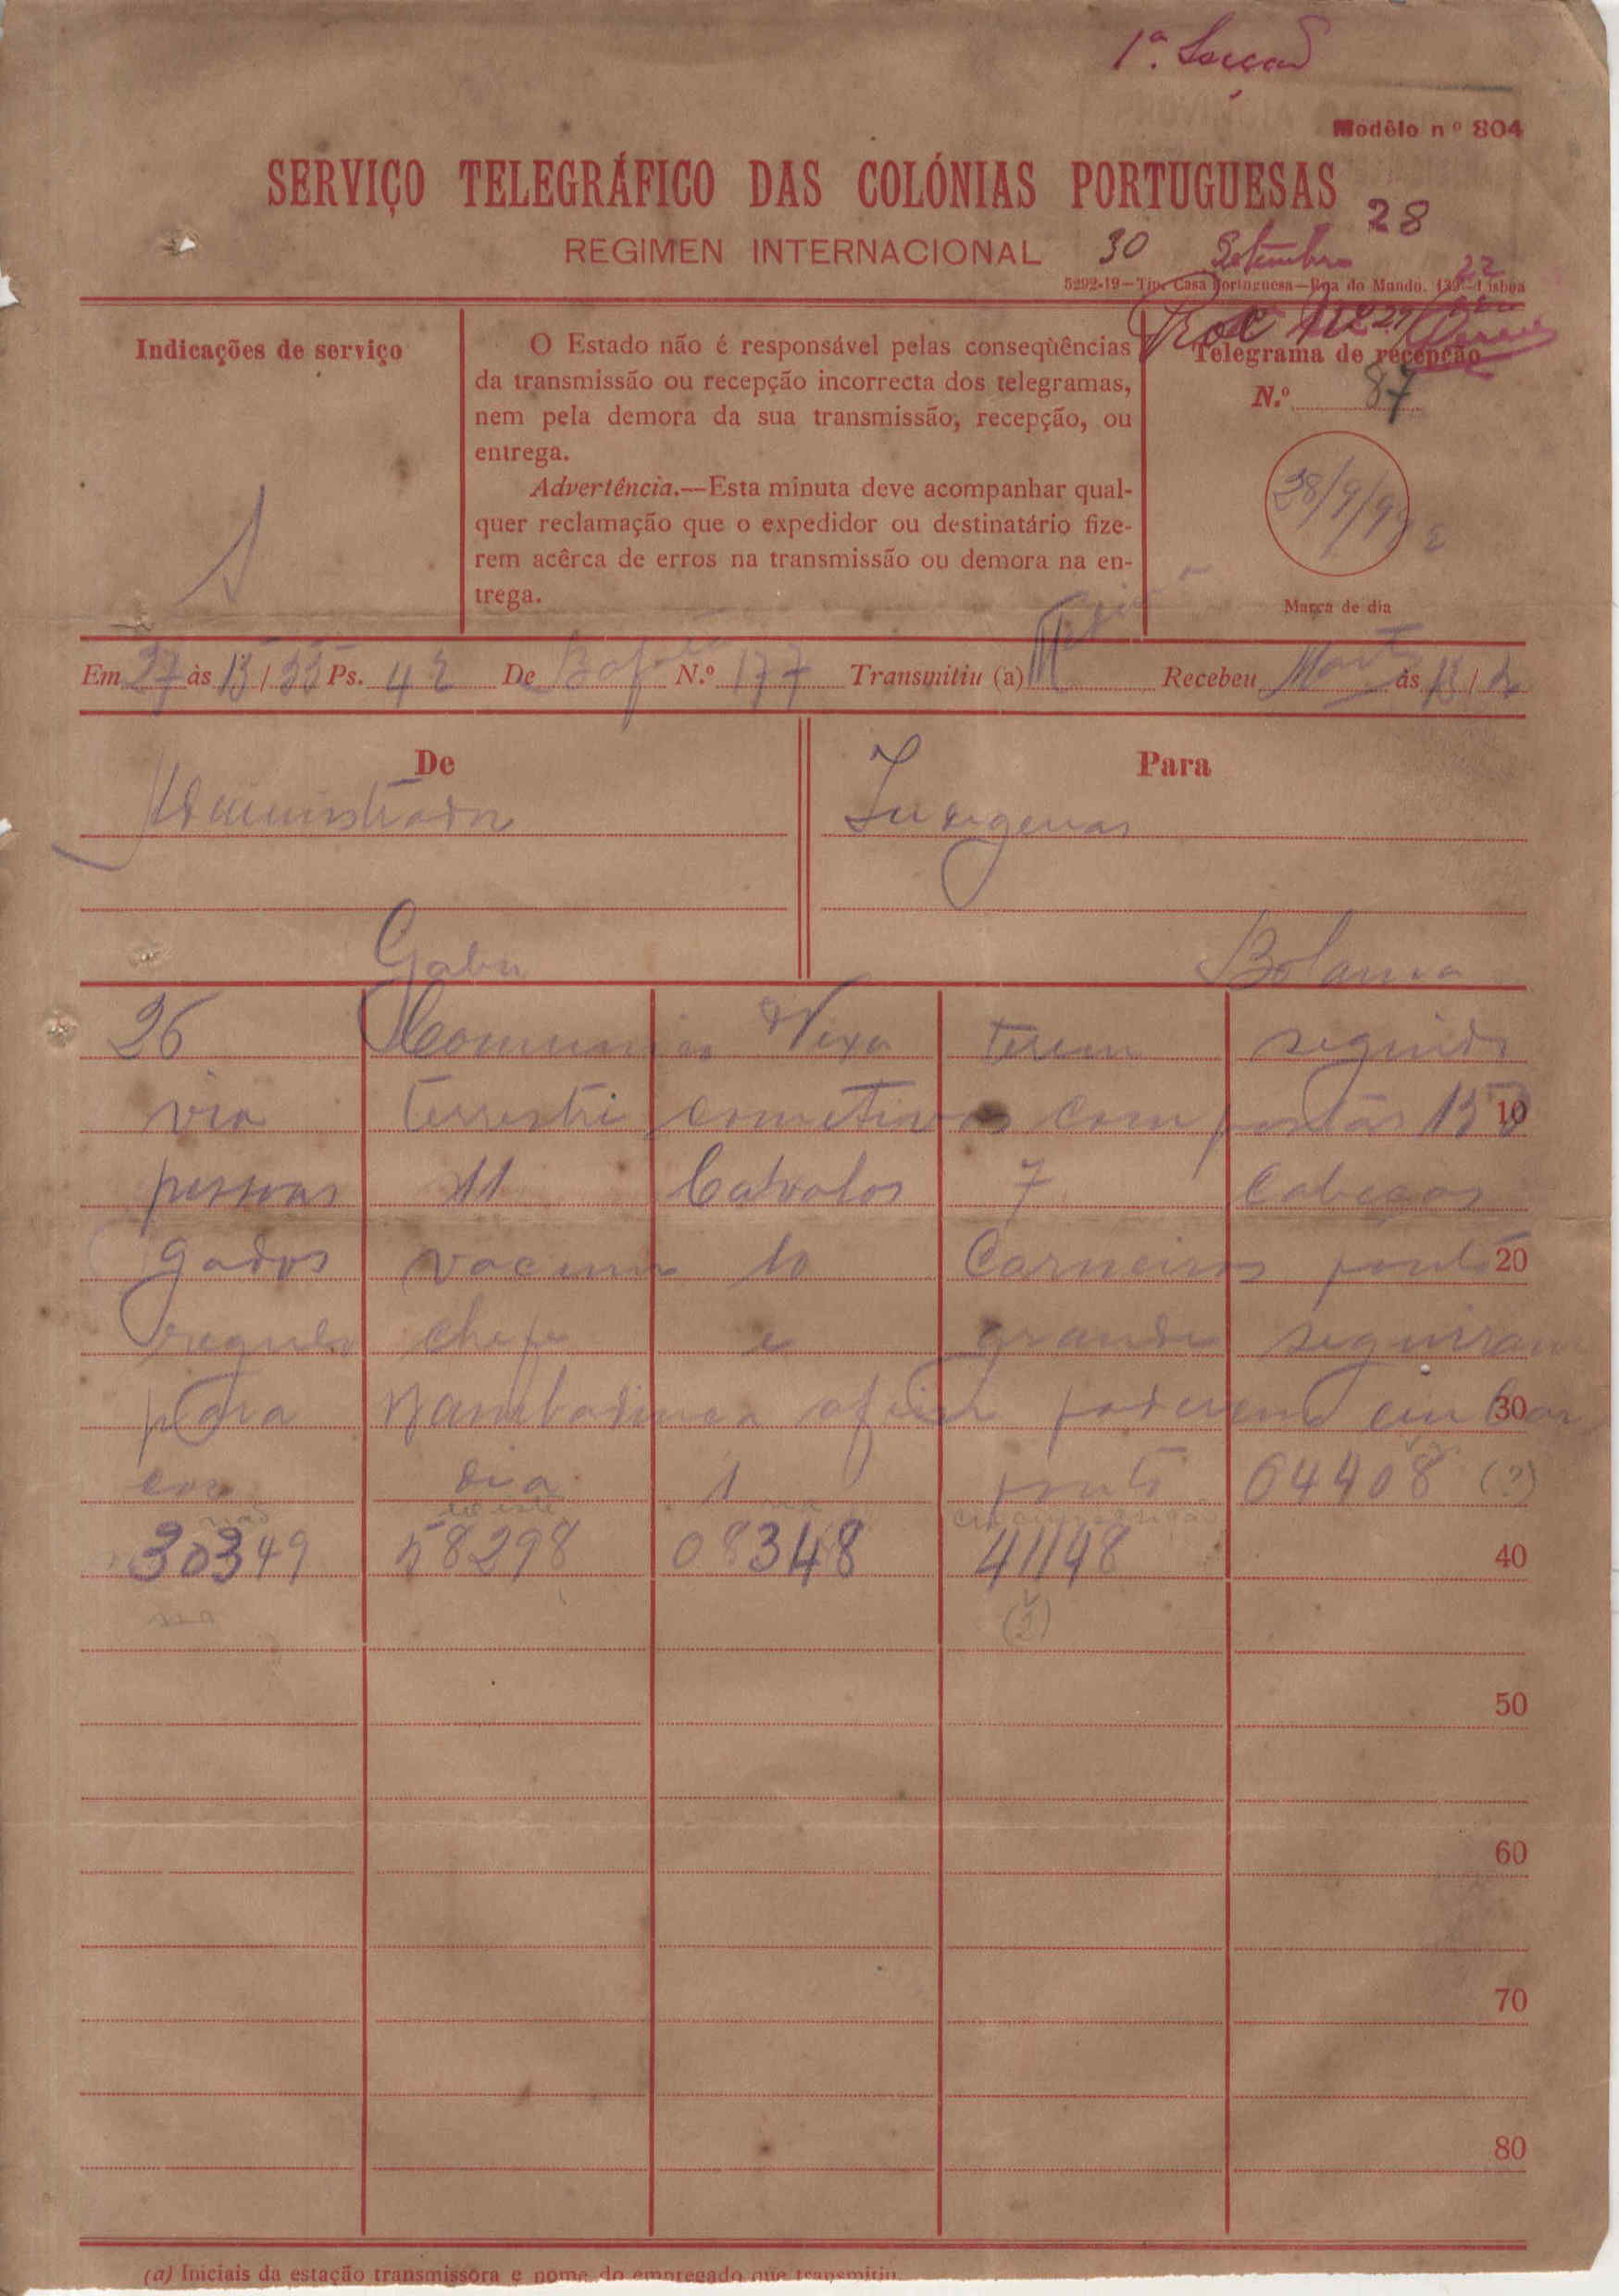 1ª. Secção
Modêlo nº 804
SERVIÇO TELEGRÁFICO DAS COLÓNIAS PORTUGUESAS
28
REGIMEN INTERNACIONAL
30 Setembro
22
5292-19—Tip. Casa Portuguesa—Rua do Mundo, 139—Lisboa
Indicações de serviço
O Estado não é responsável pelas conseqüências
da transmissão ou recepção incorrecta dos telegramas,
nem pela demora da sua transmissão, recepção, ou
entrega.
Advertência.—Esta minuta deve acompanhar qual-
quer reclamação que o expedidor ou destinatário fize-
rem acêrca de erros na transmissão ou demora na en-
trega.
Telegrama de recepção
N.º 87
28/9/92 2
Marca de dia
Em 27 às 15/35 Ps. 42 De Bafatá N.º 177 Transmitiu (a) Recebeu às
De
Administrador
Gabu
Para
Indigenas
Bolama
26 Comunico Vexa terem seguido
via terrestre comitivas compostas 150
10
pessoas 11 Cavalos 7 Cabeças
gados vacum 10 Carneiros ponto
20
regulo chefe e grande seguiram
para Bambadinca afim poderem embar
30
car dia 1 ponto 04408 (?)
30349 58298 08348 41148
40
(?)
50
60
70
80
(a) Iniciais da estação transmissora e nome do empregado que transmitiu.